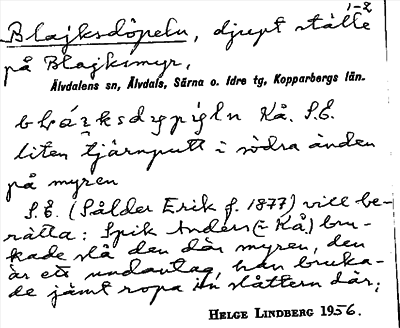 1-2
Blajksdöpeln, djupt ställe
på Blajksmyr,
Älvdalens sn, Älvdals, Särna o. Idre tg, Kopparbergs län.
Kå. S.E.
liten tjärnputt i södra änden
på myren
S.E. (Sålder Erik f. 1877) vill be-
rätta: Spik Anders (= Kå.) bru-
kade slå den där myren, den
är ett undantag, han bruka-
de jämt ropa in slåttern där;
HELGE LINDBERG 1956.